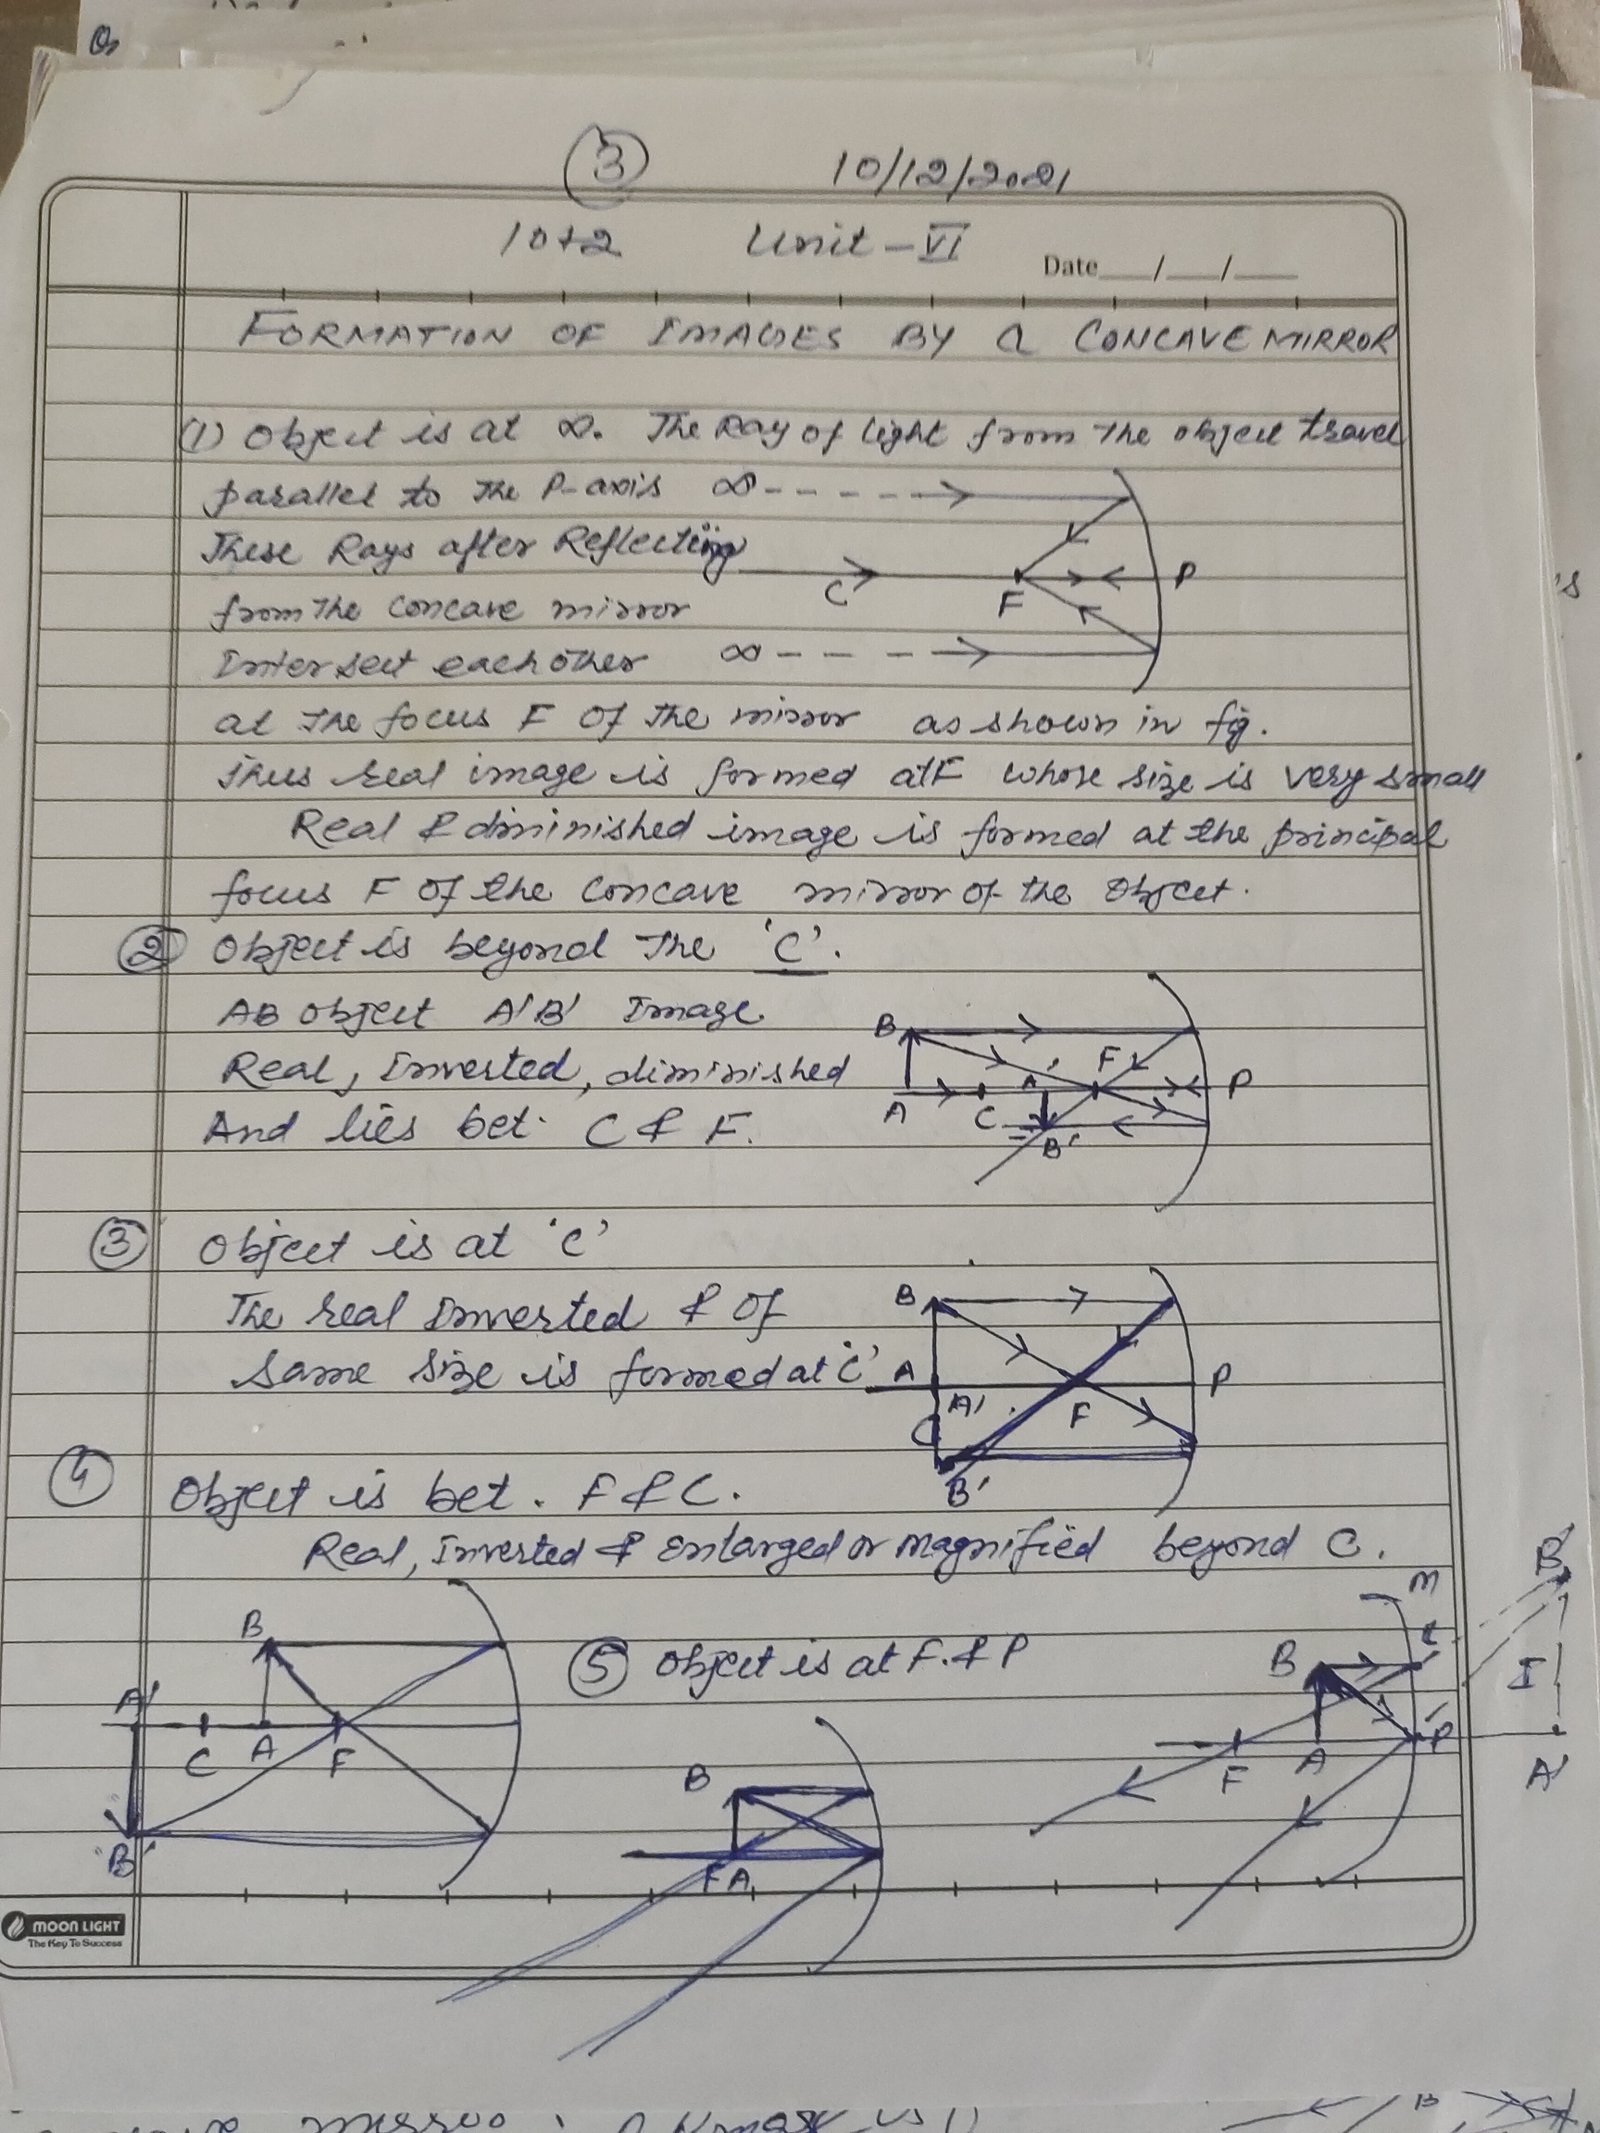 3 10/12/2021
10+2 Unit - VI
Date ___/___/___
FORMATION OF IMAGES BY A CONCAVE MIRROR
(1) Object is at ∞. The Ray of light from the object travel
parallel to the P-axis ∞
These Rays after Reflecting
C F P
from the concave mirror
Intersect each other ∞
at the focus F of the mirror as shown in fig.
Thus real image is formed at F whose size is very small
Real & diminished image is formed at the principal
focus F of the concave mirror of the object.
② Object is beyond the 'C'.
AB object A'B' Image
B F A'
Real, Inverted, diminished
A C P
And lies bet. C & F.
B'
③ Object is at 'C'
The real Inverted & of
B
same size is formed at 'C'
A A' F P
C
B'
④ Object is bet. F & C.
Real, Inverted & Enlarged or magnified beyond C.
B
A' C A F
B'
⑤ Object is at F. & P
B
F A
M B'
B I
F A P A'
MOON LIGHT
The Key To Success